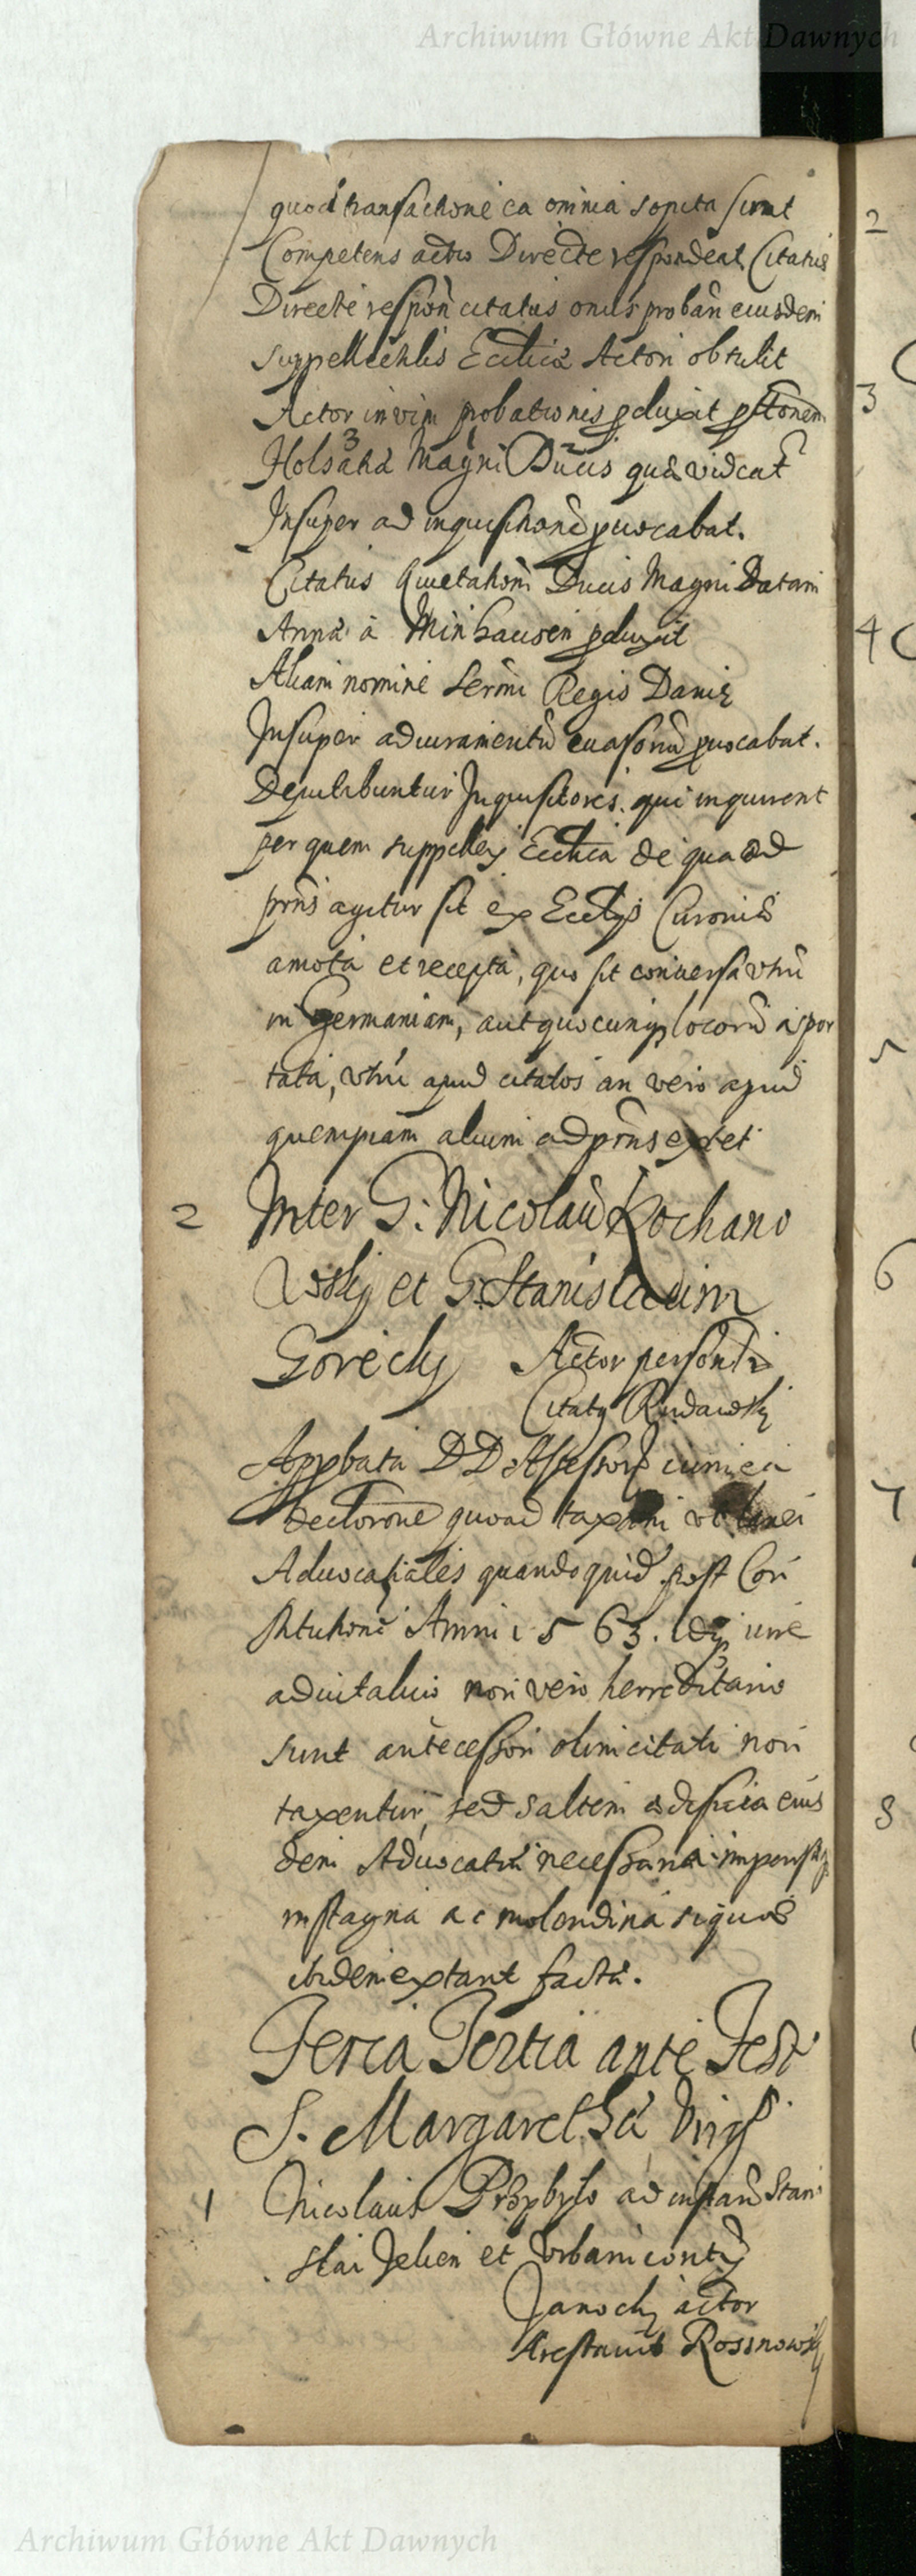 Archiwum Główne Akt Dawnych
quod transactione ea omnia sopita sunt
Competens actio Directe respondeat Citatus
Directe respon citatus onus proban eiusdem
suppellectilis Ecclicæ Actori obtulit
Actor in vim probationis pduxit
Holsatiæ Magni Ducis quæ videat
Insuper ad inquisitionē puocabat.
Citatus Quietationem Ducis Magni Datam
Annæ à Minhausen pduxit
Aliam nomine Sermi Regis Daniæ
Insuper ad iuramentū euasoriū puocabat.
Deputabuntur Inquisitores. qui inquirent
per quem suppellex Ecclica de qua ad
prns agitur sit ex Ecclijs Curoniæ
amota et recepta, quo sit conuersa vtrū
in Germaniam, aut quocunqz locorū aspor
tata, vtrū apud citatos an vero apud
quempiam alium ad prns extet
2 Inter G: Nicolaū Kochano
wskij et G. Stanislaum
Gorecky Actor personlr
Citatq Rudawsky
Appbata DD Assessorū
declorone quoad taxam
Aduocatiales quandoquid post Con
stitutionē Anni 1563. iure
aduitalitio non vero herreditario
sunt antecessori olim citati non
taxentur, sed saltem ædificia eius
dem Aduocatiæ necessaria impensisqz
in stagna ac molendina siquæ
ibidem extant facta.
Feria Tertia ante Fest
S. Margarethæ Virgs
1 Nicolaus Przybylo ad instan Stani
slai Jelien et Vrbani
Janocky actor
Arestauit Rossnowsky
2
3
4
5
6
7
8
Archiwum Główne Akt Dawnych